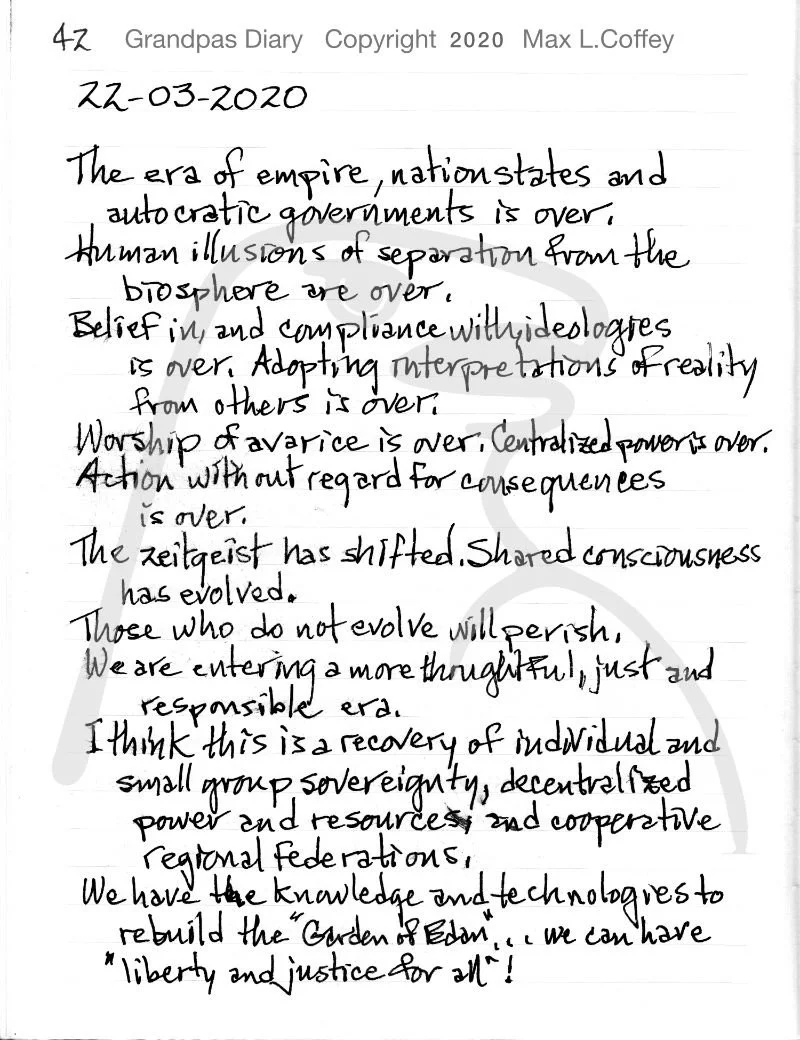 42 Grandpas Diary Copyright 2020 Max L.Coffey
22-03-2020
The era of empire, nation states and
autocratic governments is over.
Human illusions of separation from the
biosphere are over.
Belief in, and compliance with, ideologies
is over. Adopting interpretations of reality
from others is over.
Worship of avarice is over. Centralized power is over.
Action without regard for consequences
is over.
The zeitgeist has shifted. Shared consciousness
has evolved.
Those who do not evolve will perish.
We are entering a more thoughtful, just and
responsible era.
I think this is a recovery of individual and
small group sovereignty, decentralized
power and resources, and cooperative
regional federations.
We have the knowledge and technologies to
rebuild the "Garden of Edan"... we can have
"liberty and justice for all"!